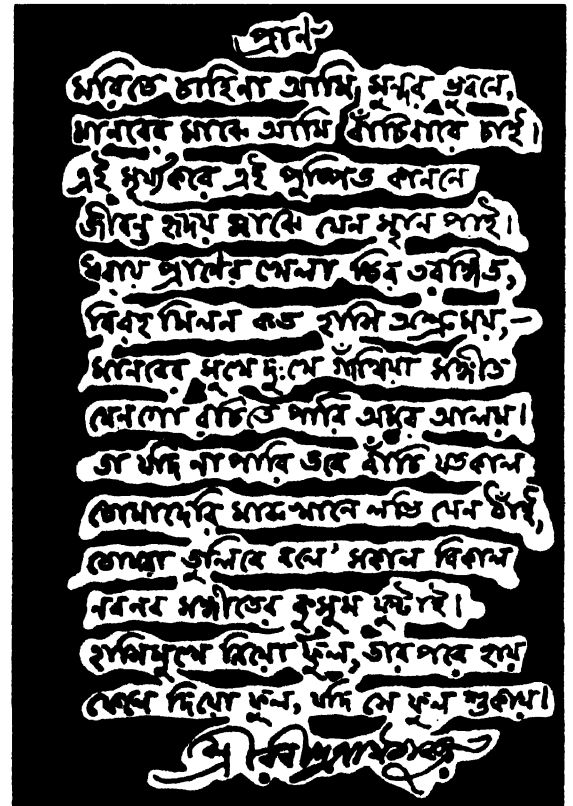 প্রাণ
মরিতে চাহিনা আমি সুন্দর ভুবনে,
মানবের মাঝে আমি বাঁচিবারে চাই।
এই সূর্য্যকরে এই পুষ্পিত কাননে
জীবন্ত হৃদয় মাঝে যেন স্থান পাই।
ধরায় প্রাণের খেলা চির তরঙ্গিত,
বিরহ মিলন কত হাসি অশ্রুময়,—
মানবের সুখে দুঃখে গাঁথিয়া সঙ্গীত
যেন গো রচিতে পারি অমর আলয়।
তা যদি না পারি তবে বাঁচি যতকাল
তোমাদেরি মাঝখানে লভি যেন ঠাঁই,
তোমরা তুলিবে বলে' সকাল বিকাল
নব নব সঙ্গীতের কুসুম ফুটাই।
হাসিমুখে নিয়ো ফুল, তার পরে হায়
ফেলে দিয়ো ফুল, যদি সে ফুল শুকায়।
শ্রীরবীন্দ্রনাথ ঠাকুর